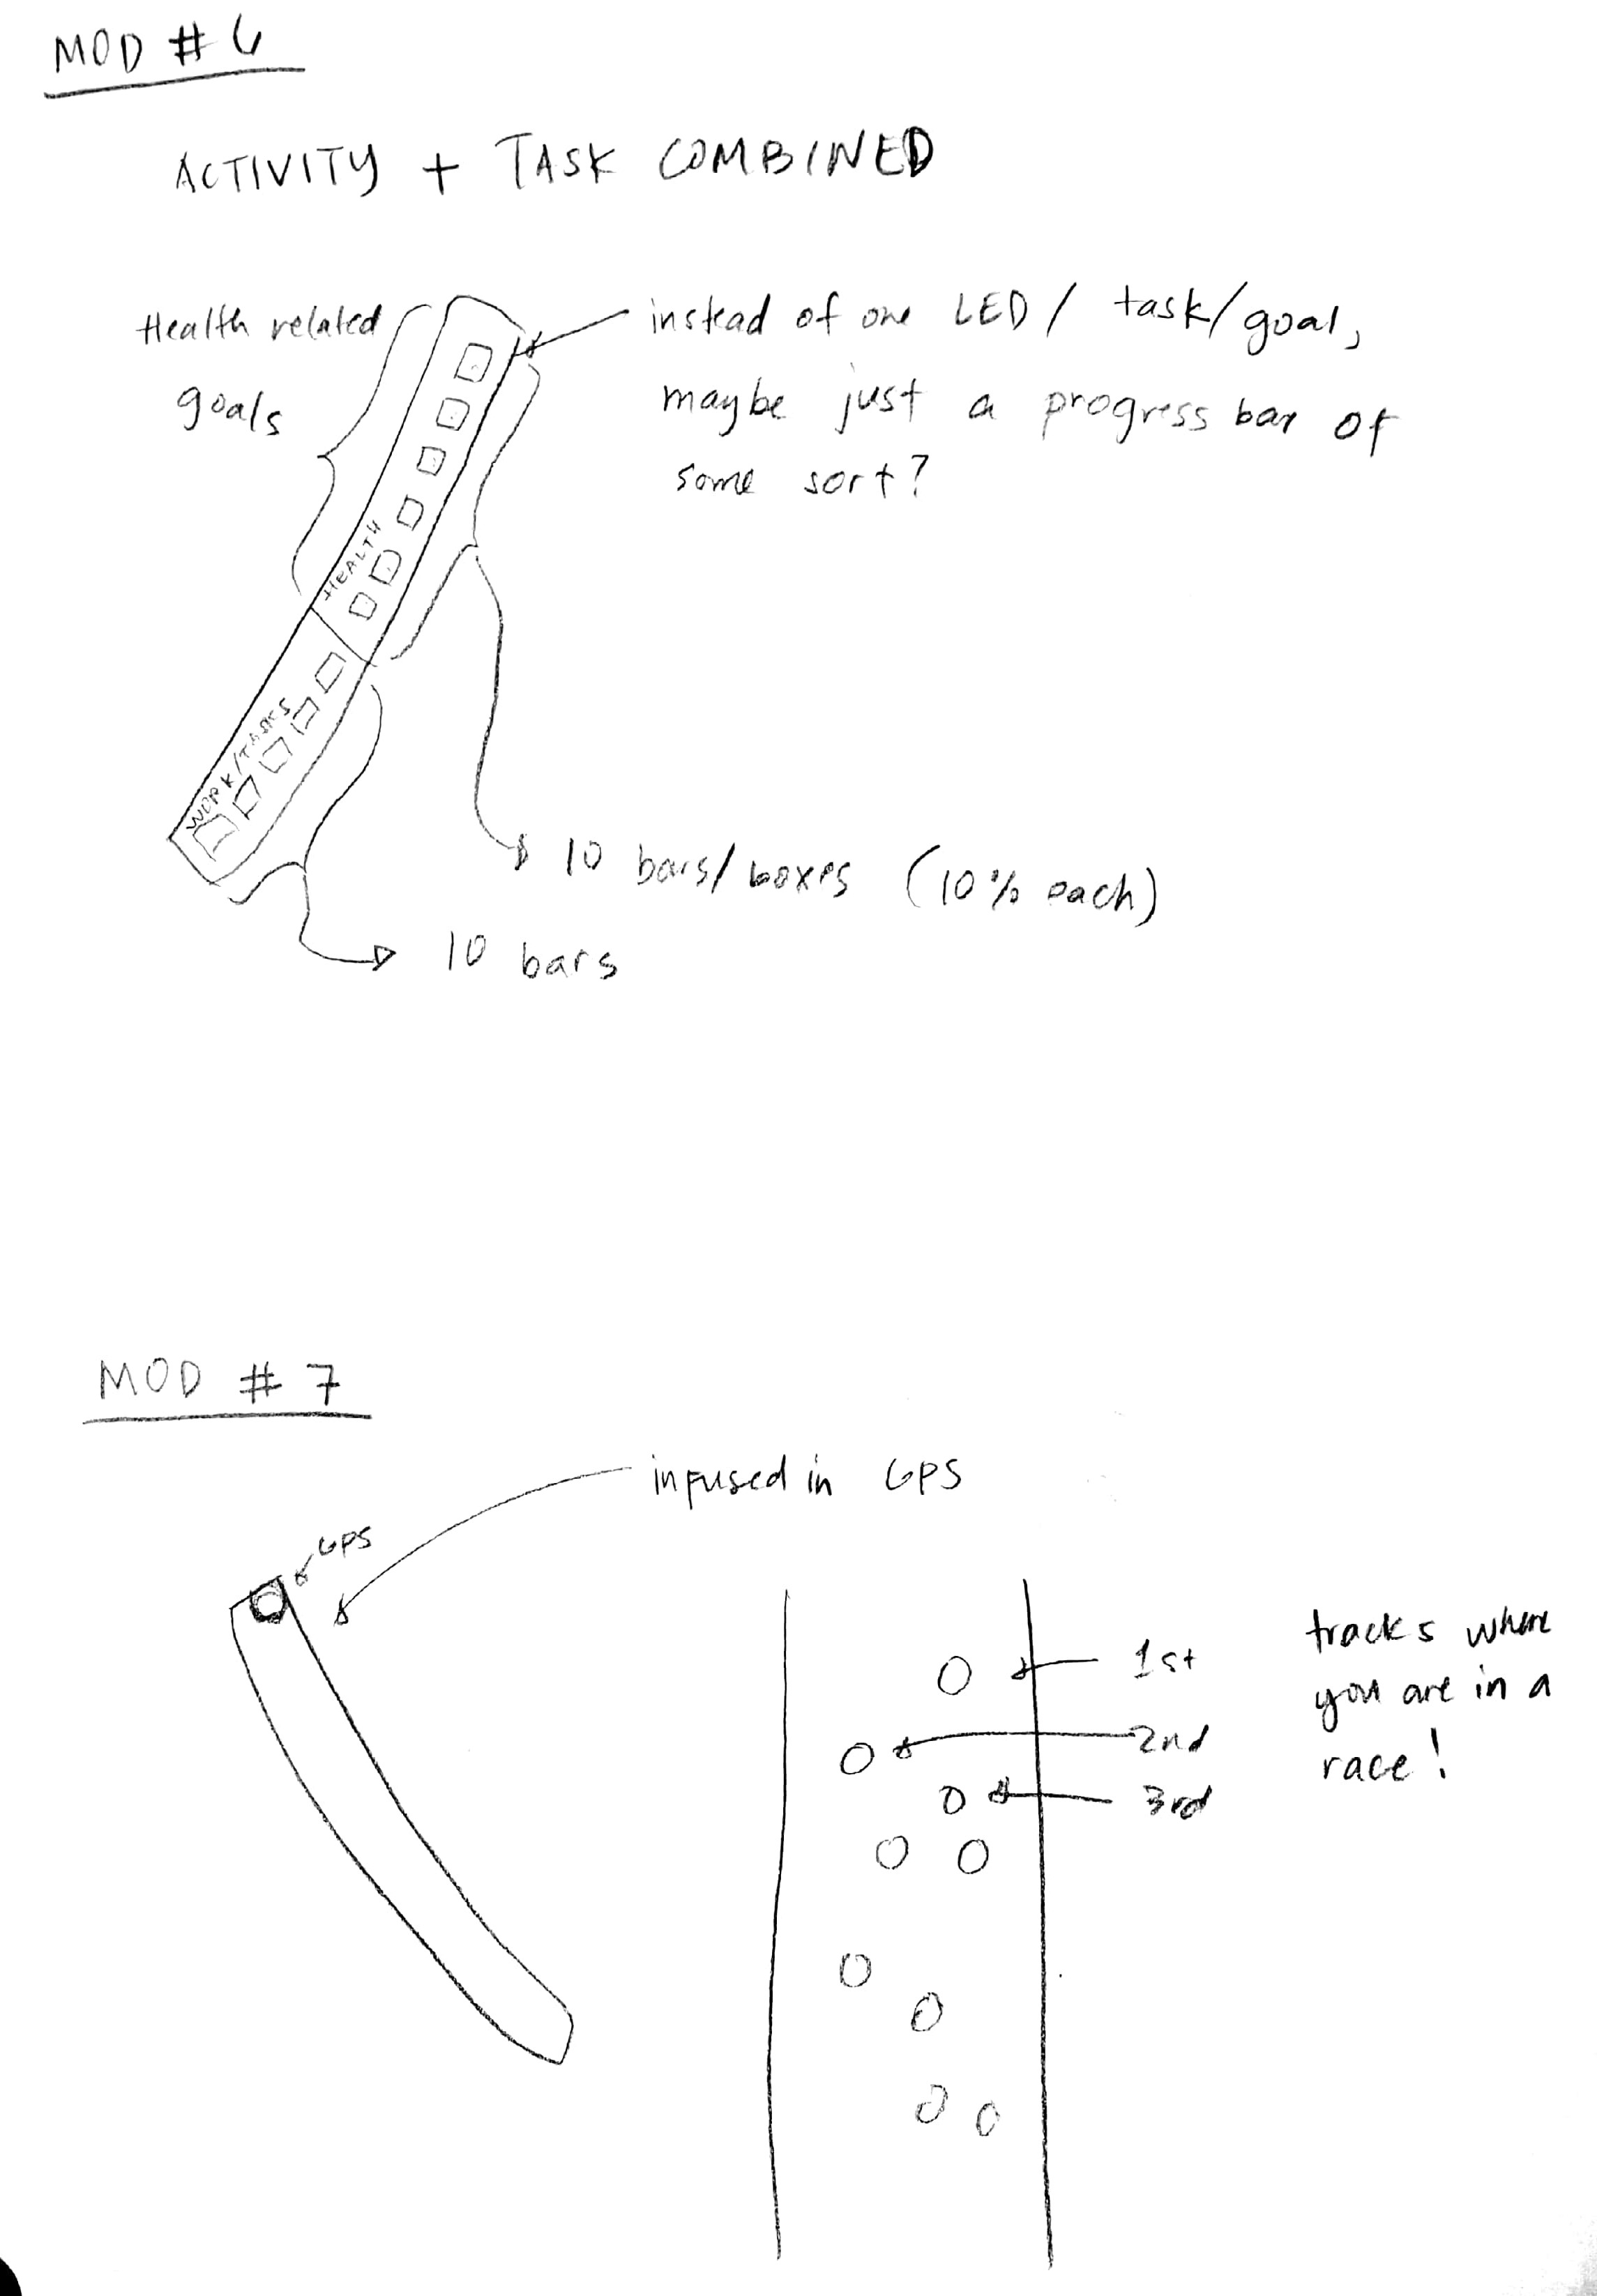 MOD # 6
ACTIVITY + TASK COMBINED
Health related
goals
instead of one LED / task/goal,
maybe just a progress bar of
some sort?
HEALTH
WORK/TASKS
10 bars/boxes (10% each)
10 bars
MOD # 7
infused in GPS
GPS
1st
2nd
3rd
tracks where
you are in a
race!